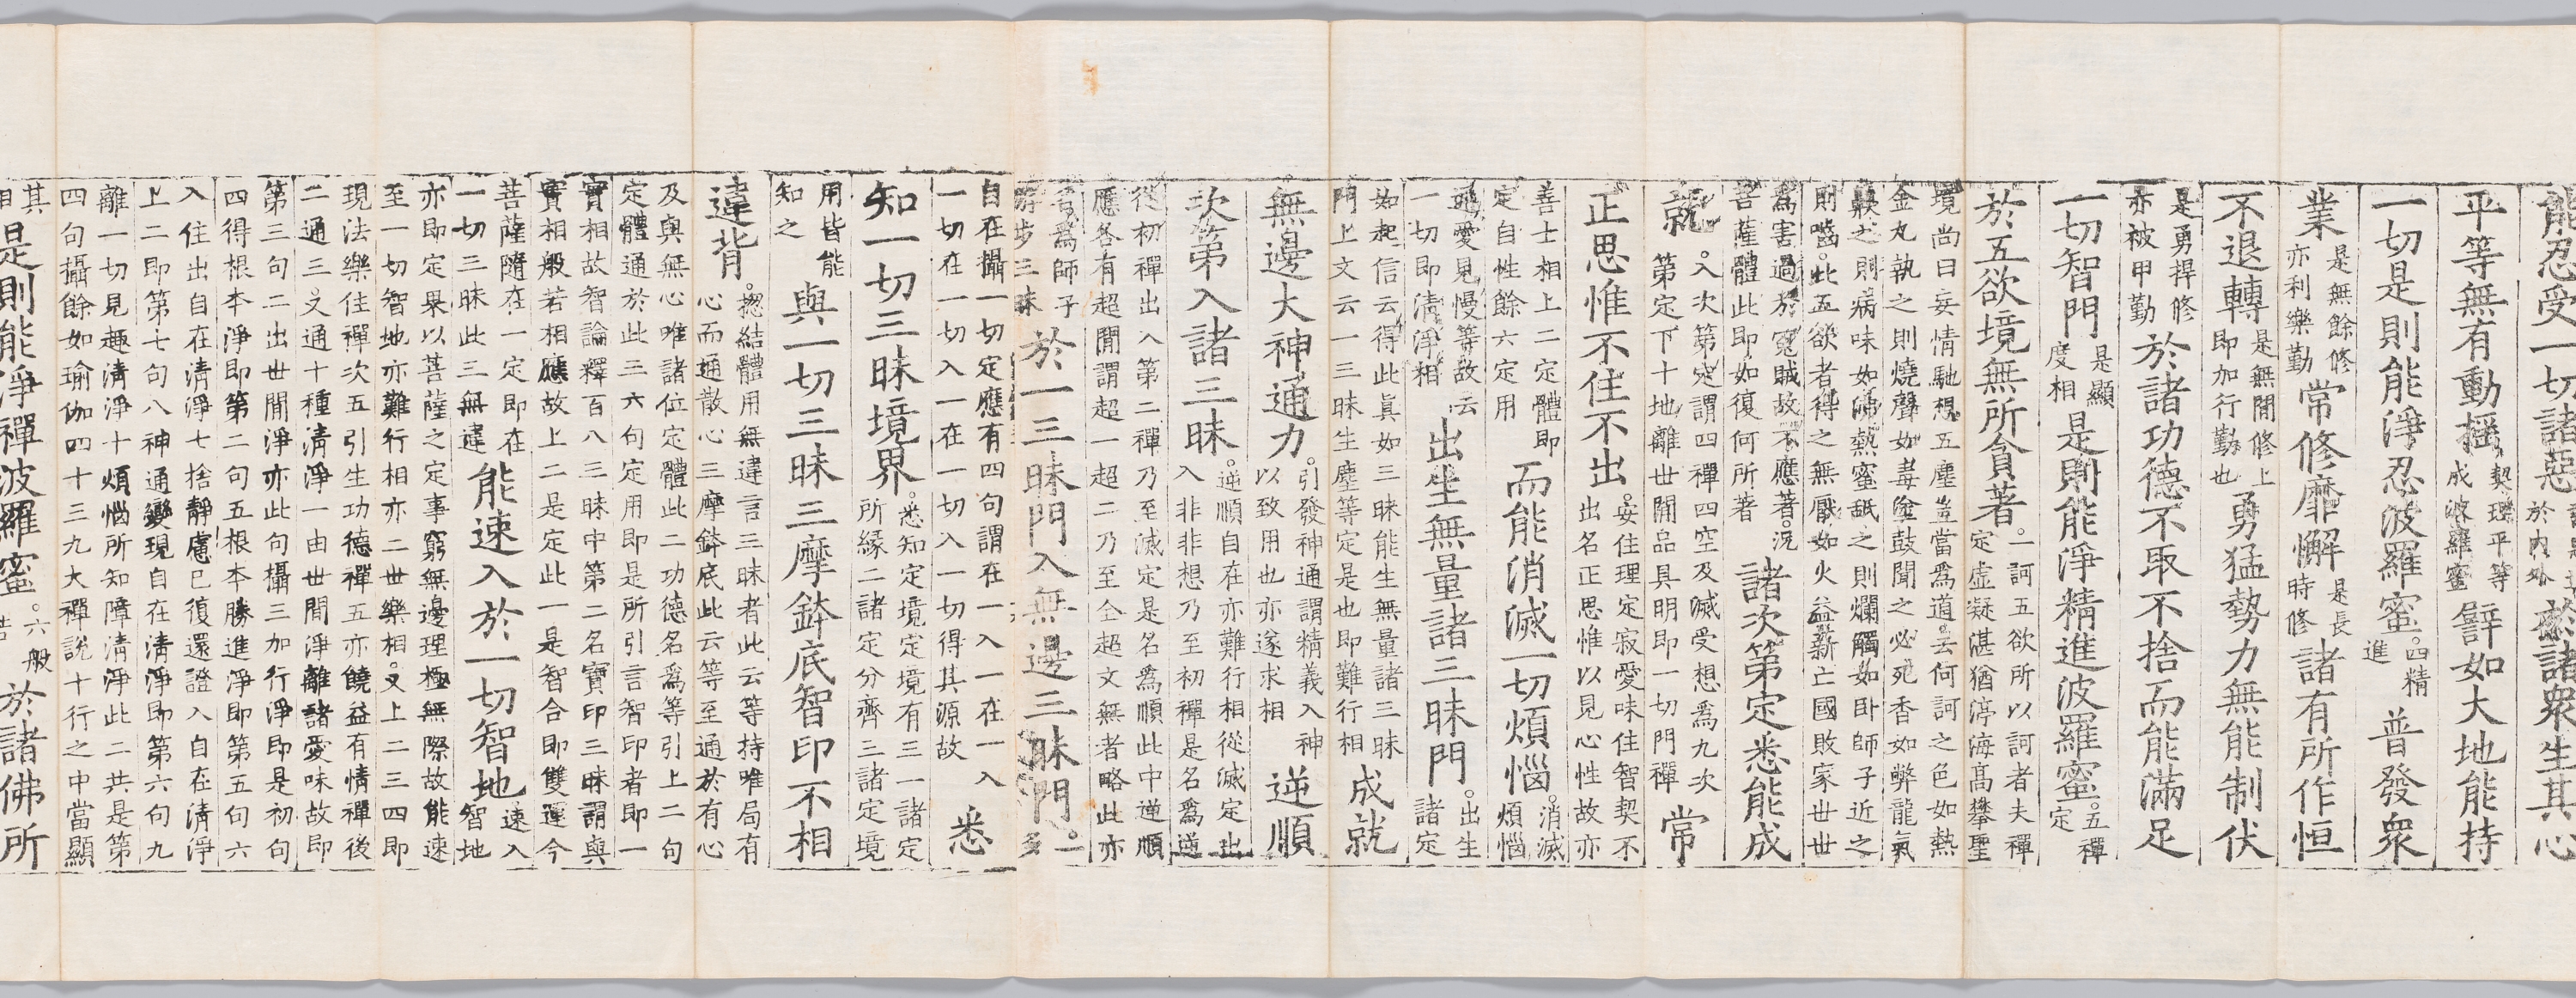 能忍受一切諸惡於諸衆生其心
平等無有動揺契理平等成波羅蜜譬如大地能持
一切是則能淨忍波羅蜜。四精進普發衆
業是無餘修亦利樂勤常修靡懈是長時修諸有所作恒
不退轉是無間修上即加行勤也勇猛勢力無能制伏
是勇捍修亦被甲勤於諸功德不取不捨而能滿足
一切智門是顯度相是則能淨精進波羅蜜。五禪定
於五欲境無所貪著。一訶五欲所以訶者夫禪定虛凝湛猶渟海髙攀聖
境尚曰妄情馳想五塵豈當爲道云何訶之色如熱
金丸執之則燒聲如毒塗鼓聞之必死香如弊龍氣
嗅之則病味如沸熱蜜舐之則爛觸如卧師子近之
則囓。此五欲者得之無厭如火益薪亡國敗家世世
爲害過於寃賊故不應著。況菩薩體此即如復何所著諸次第定悉能成
就。入次第定謂四禪四空及滅受想爲九次第定下十地離世間品具明即一切門禪常
正思惟不住不出。安住理定寂愛味住智契不出名正思惟以見心性故亦
善士相上二定體即定自性餘六定用而能消滅一切煩惱。消滅煩惱
通愛見慢等故云一切即清淨相出生無量諸三昧門。出生諸定
如起信云得此真如三昧能生無量諸三昧門上文云一三昧生塵等定是也即難行相成就
無邊大神通力。引發神通謂精義入神以致用也亦遂求相逆順
次第入諸三昧。逆順自在亦難行相從滅定出入非非想乃至初禪是名爲逆
從初禪出入第二禪乃至滅定是名爲順此中逆順應各有超間謂超一超二乃至全超文無者略此亦
名爲師子遊步三昧於一三昧門入無邊三昧門。一多
自在攝一切定應有四句謂在一入一在一入一切在一切入一在一切入一切得其源故悉
知一切三昧境界。悉知定境定境有三一諸定所緣二諸定分齊三諸定境
用皆能知之與一切三昧三摩鉢底智印不相
違背。揔結體用無違言三昧者此云等持唯局有心而通散心三摩鉢底此云等至通於有心
及與無心唯諸位定體此二功德名爲等引上二句定體通於此三六句定用即是所引言智印者即一
實相故智論釋百八三昧中第二名寶印三昧謂與實相般若相應故上二是定此一是智合即雙運今
菩薩隨在一定即在一切三昧此三無違能速入於一切智地速入智地
亦即定果以菩薩之定事窮無邊理極無際故能速至一切智地亦難行相亦二世樂相。又上二三四即
現法樂住禪次五引生功德禪五亦饒益有情禪後二通三。又通十種清淨一由世間淨離諸愛味故即
第三句二出世間淨亦此句攝三加行淨即是初句四得根本淨即第二句五根本勝進淨即第五句六
入住出自在清淨七捨靜慮已復還證入自在清淨上二即第七句八神通變現自在清淨即第六句九
離一切見趣清淨十煩惱所知障清淨此二共是第四句攝餘如瑜伽四十三九大禪說十行之中當顯
其相是則能淨禪波羅蜜。六般於諸佛所